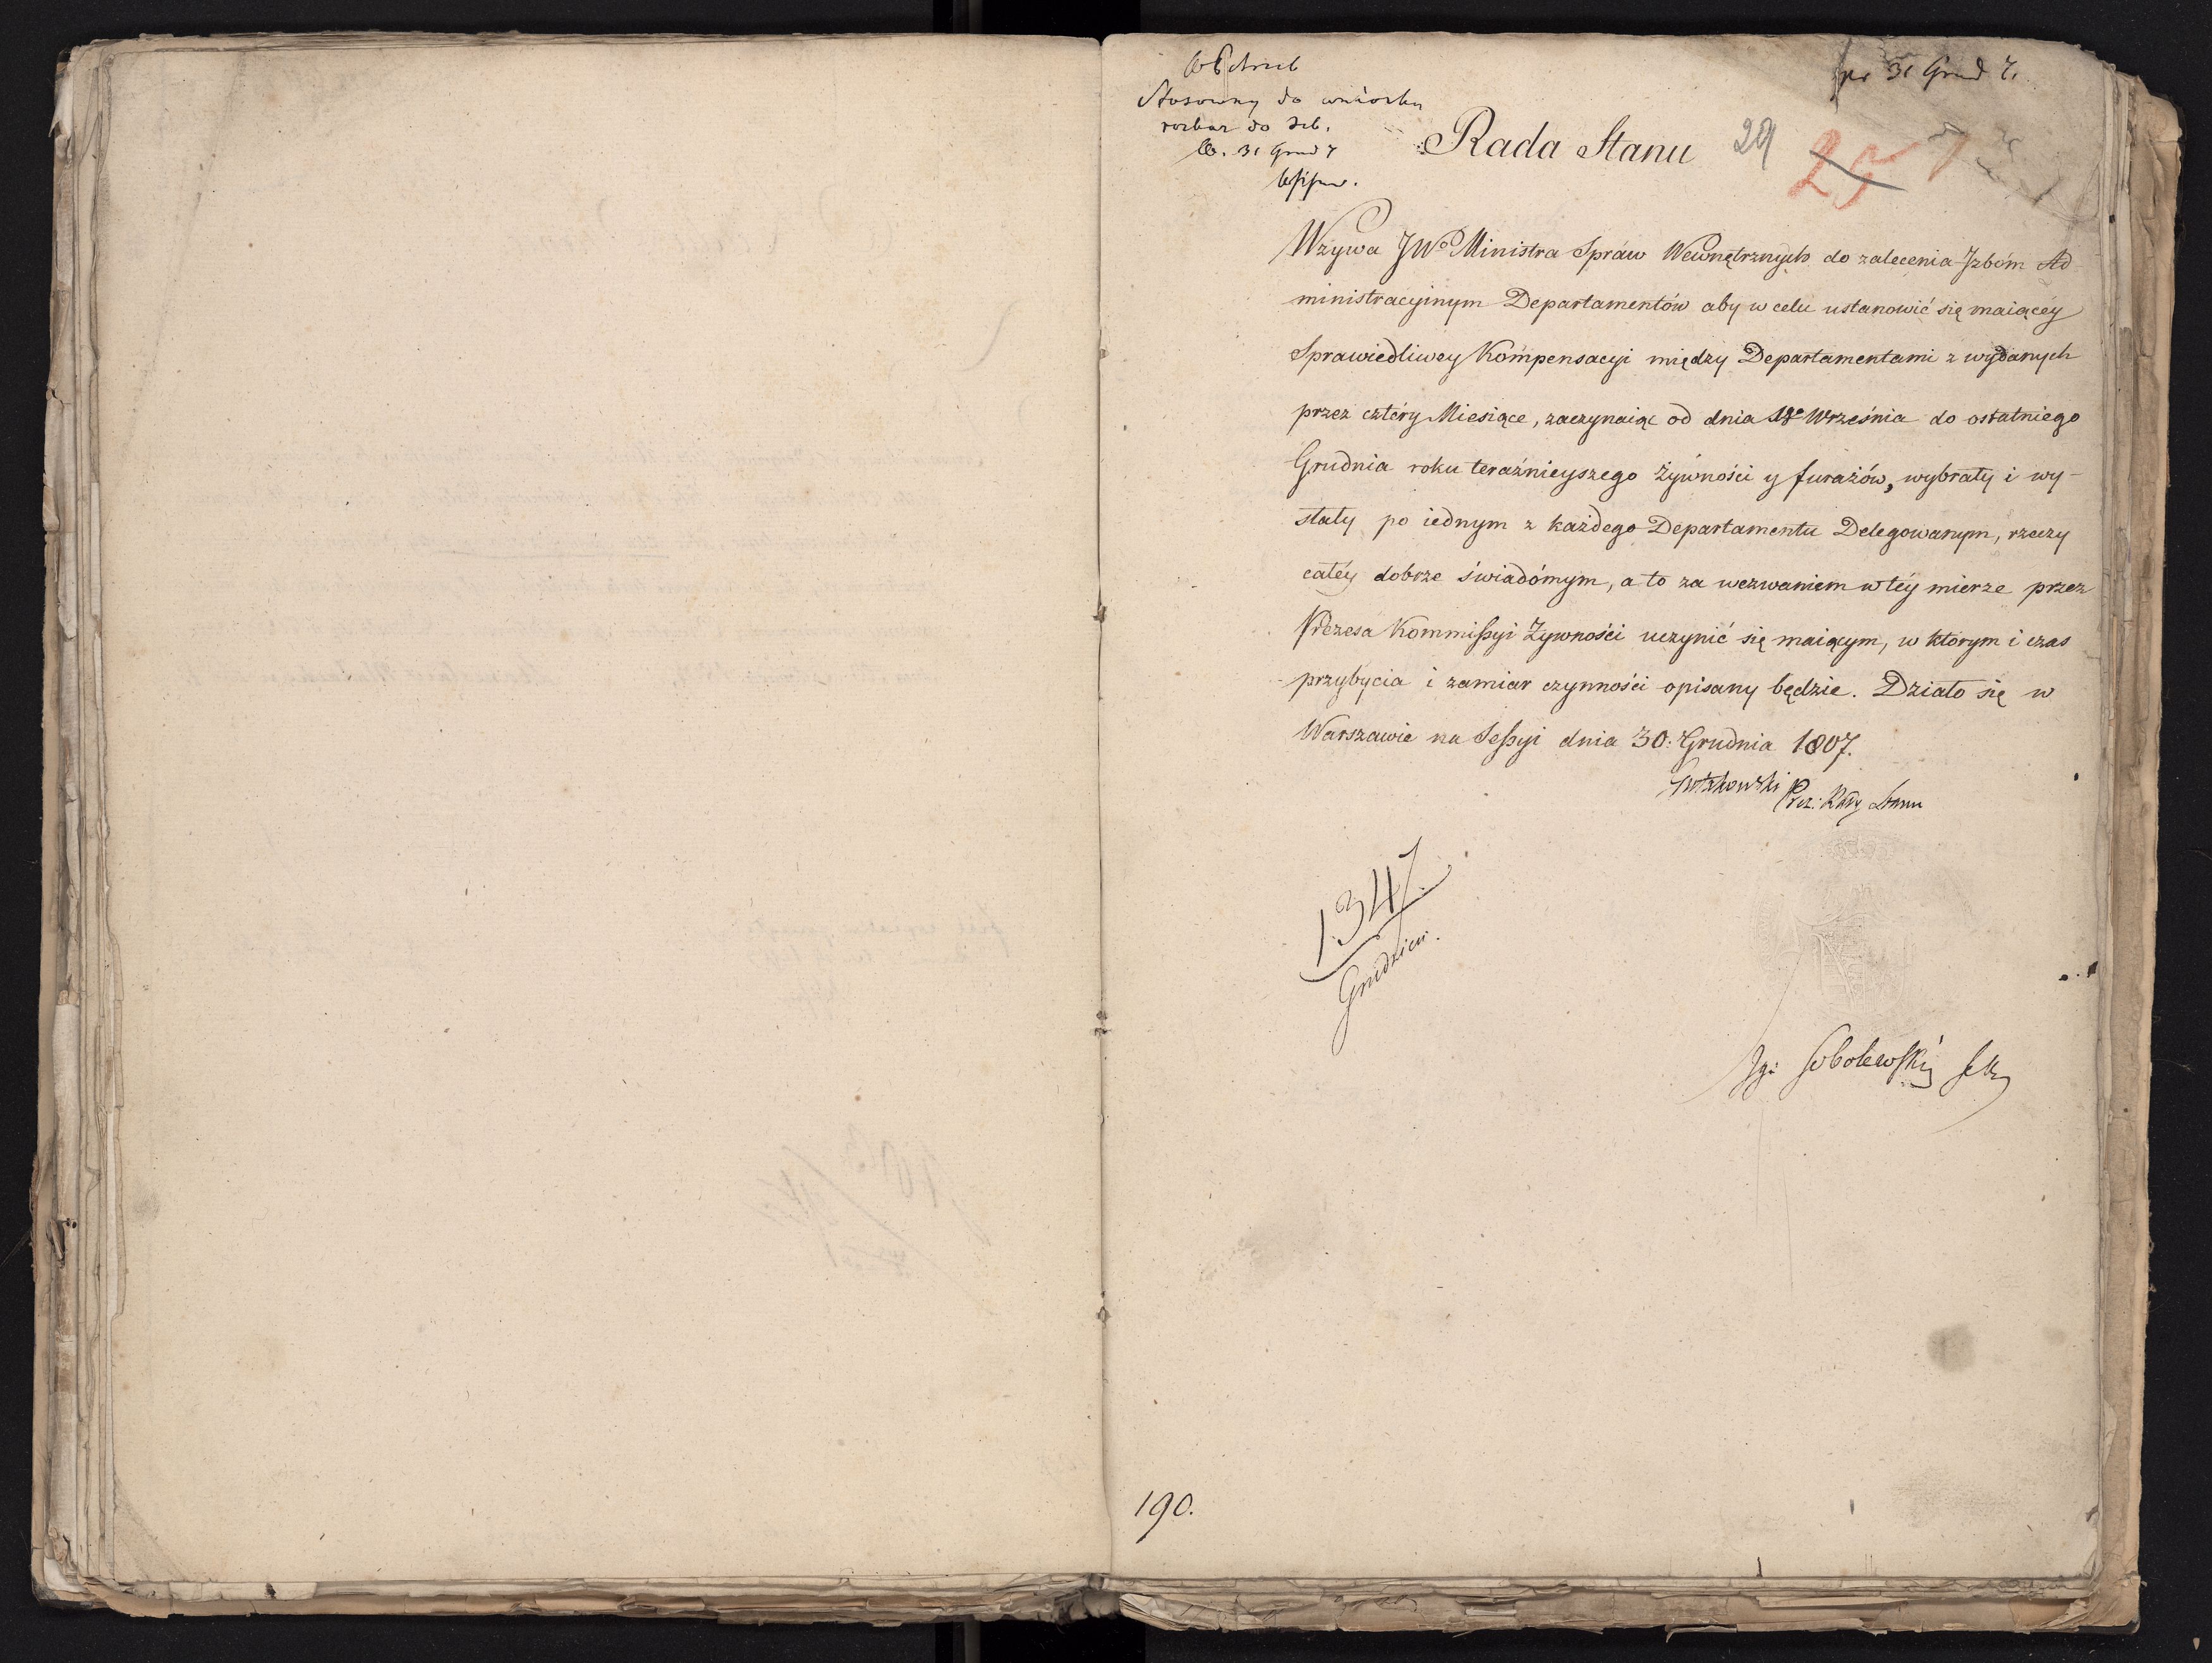 Stosowny do wniosku
rozkaz do Izb.
W. 31 Grud 7
pr 31 Grud 7.
Rada Stanu
29
25
Wzywa JWo Ministra Spraw Wewnętrznych do zalecenia Jzbóm Ad
ministracyinym Departamentów aby w celu ustanowić się maiącéy
Sprawiedliwey Kompensacyi między Departamentami z wydanych
przez cztéry Miesiące, zaczynaiąc od dnia 1go Września do ostatniego
Grudnia roku teraźnieyszego Żywności y furażów, wybrały i wy-
słały po iednym z każdego Departamentu Delegowanym, rzeczy
całéy dobrze świadómym, a to za wezwaniem w téy mierze przez
Prezesa Kommißyi Żywności uczynić się maiącym, w którym i czas
przybycia i zamiar czynności opisany będzie. Działo się w
Warszawie na Seßyi dnia 30: Grudnia 1807.
Gutakowski Prez: Rady Stanu
1347.
Grudzień.
Ig: Sobolewski Sekr
190.